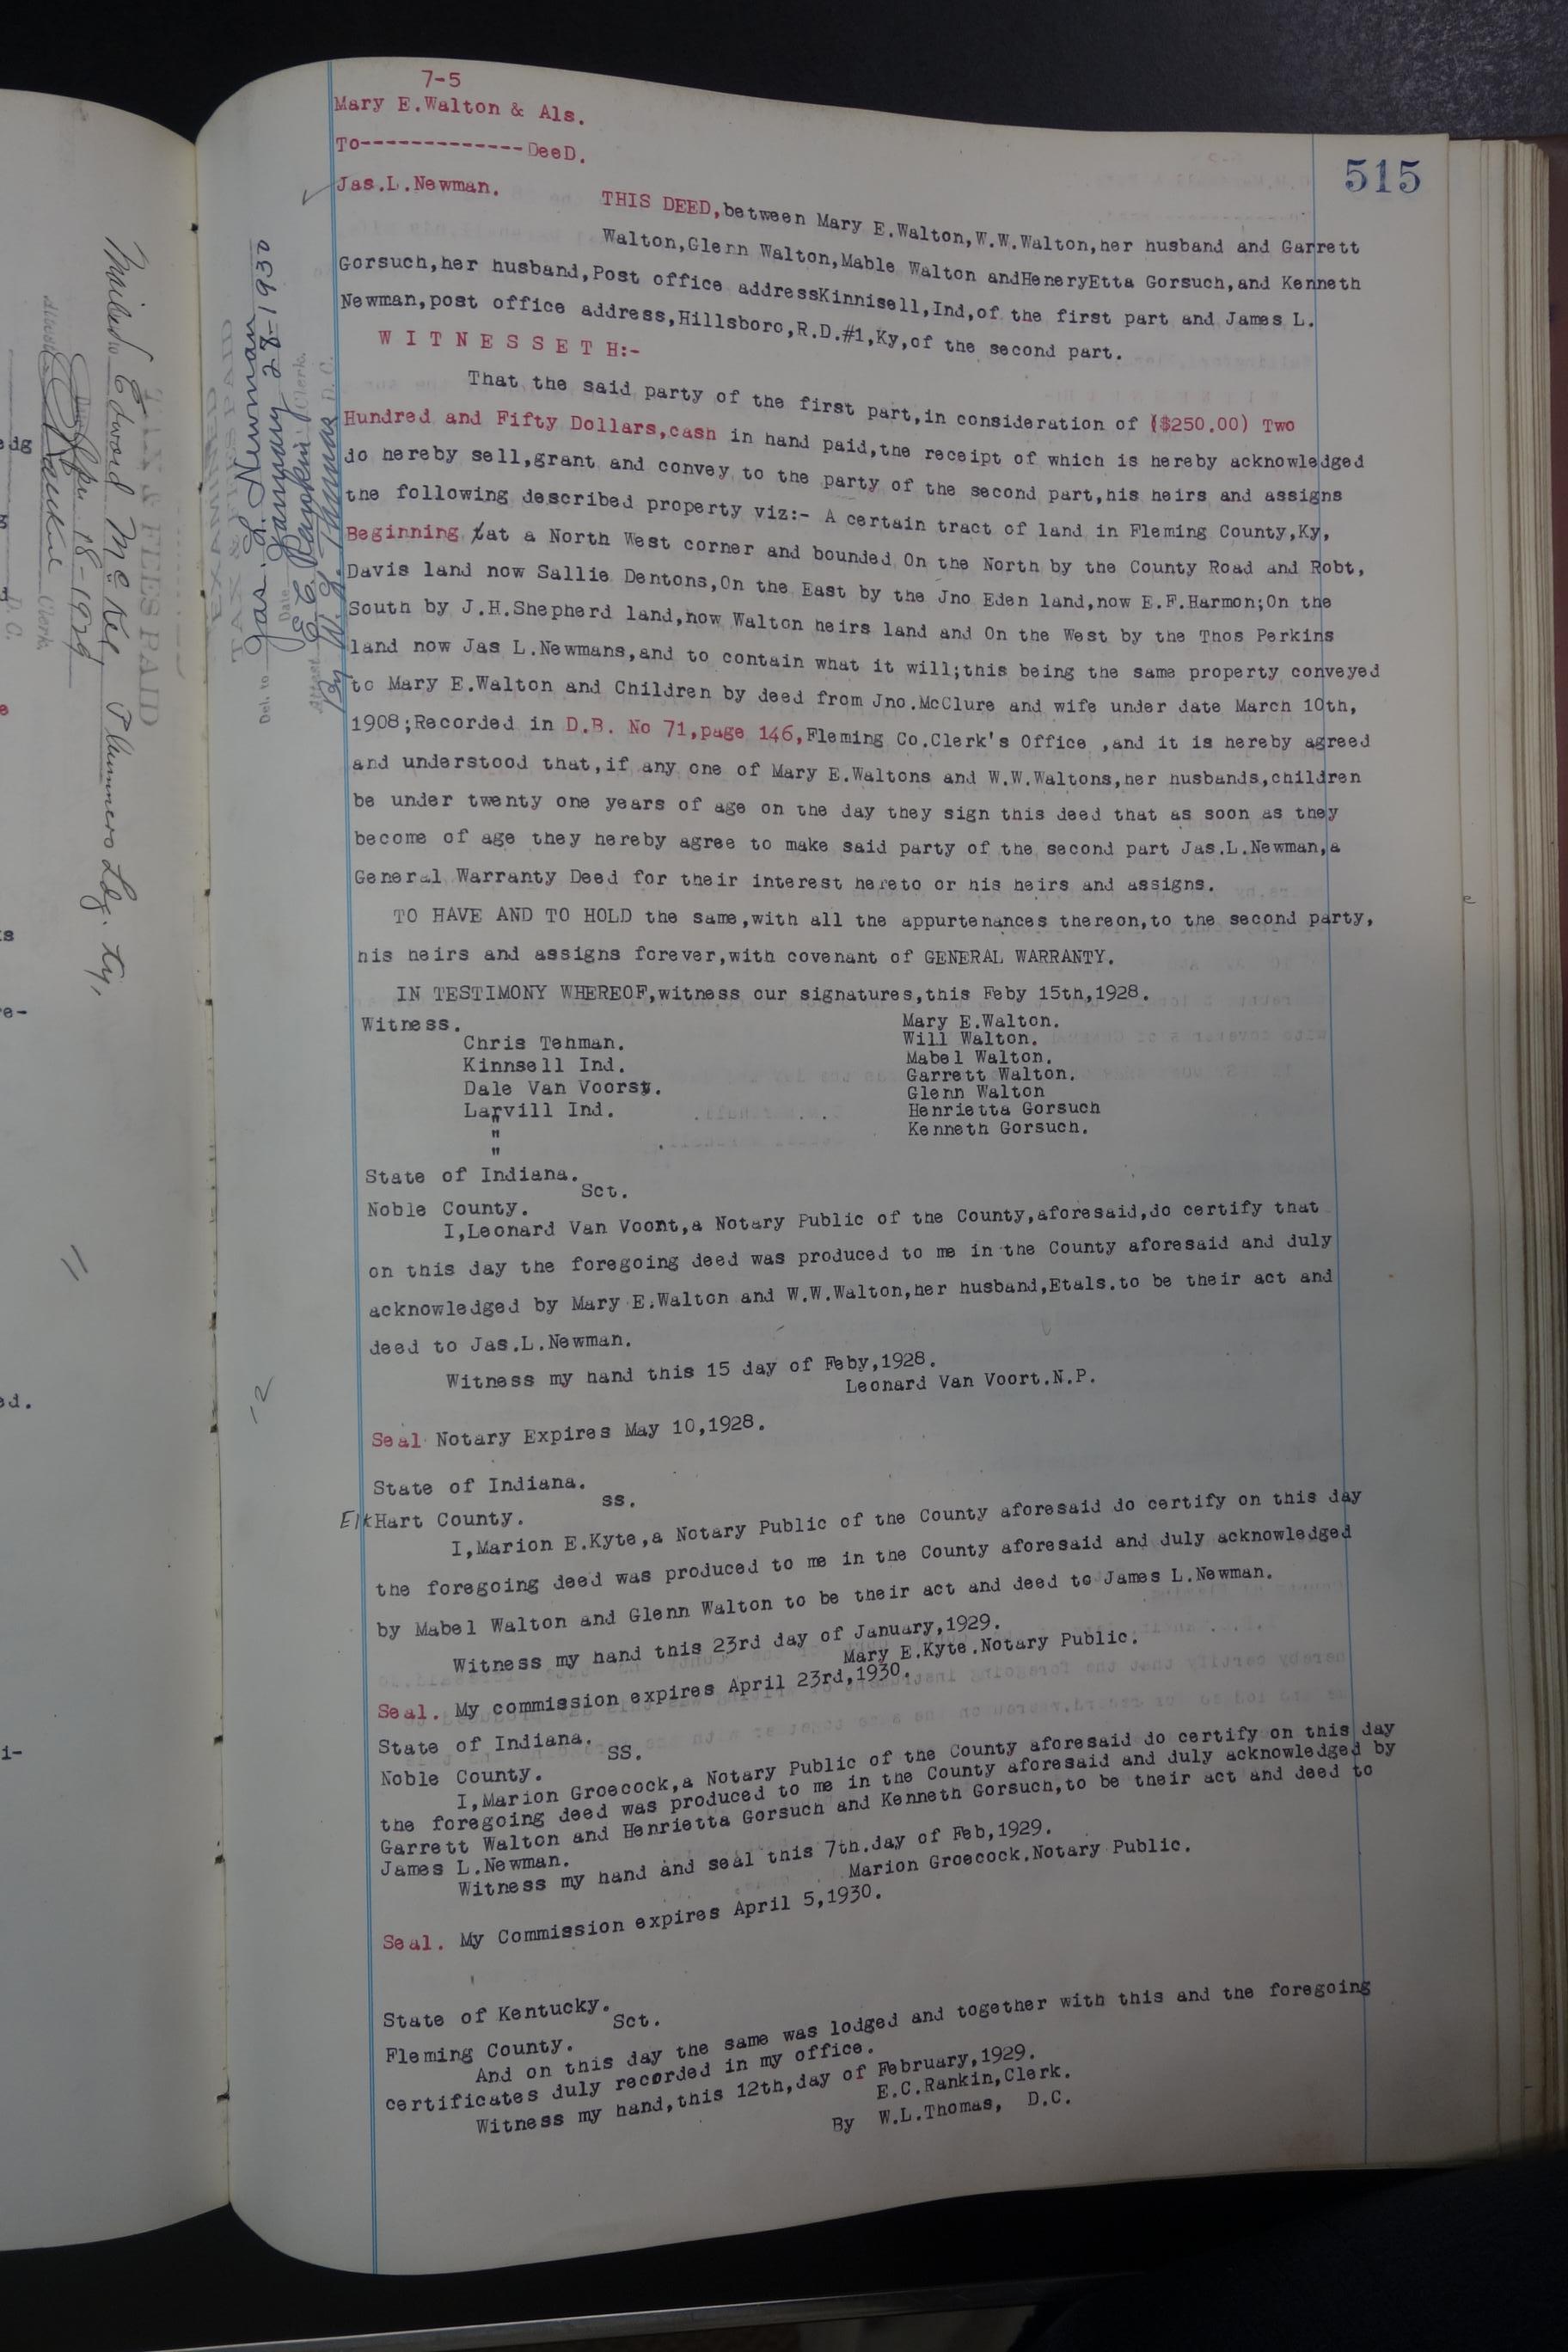 515
7-5
Mary E.Walton & Als.
To-------------DeeD.
Jas.L.Newman.
THIS DEED,between Mary E.Walton,W.W.Walton,her husband and Garrett
Walton,Glenn Walton,Mable Walton andHeneryEtta Gorsuch,and Kenneth
Gorsuch,her husband,Post office addressKinnisell,Ind,of the first part and James L.
Newman,post office address,Hillsboro,R.D.#1,Ky,of the second part.
W I T N E S S E T H:-
That the said party of the first part,in consideration of ($250.00) Two
Hundred and Fifty Dollars,cash in hand paid,the receipt of which is hereby acknowledged
do hereby sell,grant and convey to the party of the second part,his heirs and assigns
the following described property viz:- A certain tract of land in Fleming County,Ky,
Beginning at a North West corner and bounded On the North by the County Road and Robt,
Davis land now Sallie Dentons,On the East by the Jno Eden land,now E.F.Harmon;On the
South by J.H.Shepherd land,now Walton heirs land and On the West by the Thos Perkins
land now Jas L.Newmans,and to contain what it will;this being the same property conveyed
to Mary E.Walton and Children by deed from Jno.McClure and wife under date March 10th,
1908;Recorded in D.B. No 71,page 146,Fleming Co.Clerk's Office ,and it is hereby agreed
and understood that,if any one of Mary E.Waltons and W.W.Waltons,her husbands,children
be under twenty one years of age on the day they sign this deed that as soon as they
become of age they hereby agree to make said party of the second part Jas.L.Newman,a
General Warranty Deed for their interest hereto or his heirs and assigns.
TO HAVE AND TO HOLD the same,with all the appurtenances thereon,to the second party,
his heirs and assigns forever,with covenant of GENERAL WARRANTY.
IN TESTIMONY WHEREOF,witness our signatures,this Feby 15th,1928.
Witness.
Chris Tehman.
Kinnsell Ind.
Dale Van Voorst.
Larvill Ind.
"
"
"
Mary E.Walton.
Will Walton.
Mabel Walton.
Garrett Walton.
Glenn Walton
Henrietta Gorsuch
Kenneth Gorsuch.
State of Indiana.
Sct.
Noble County.
I,Leonard Van Voort,a Notary Public of the County,aforesaid,do certify that
on this day the foregoing deed was produced to me in the County aforesaid and duly
acknowledged by Mary E.Walton and W.W.Walton,her husband,Etals.to be their act and
deed to Jas.L.Newman.
Witness my hand this 15 day of Feby,1928.
Leonard Van Voort.N.P.
Seal Notary Expires May 10,1928.
State of Indiana.
ss.
ElkHart County.
I,Marion E.Kyte,a Notary Public of the County aforesaid do certify on this day
the foregoing deed was produced to me in the County aforesaid and duly acknowledged
by Mabel Walton and Glenn Walton to be their act and deed to James L.Newman.
Witness my hand this 23rd day of January,1929.
Mary E.Kyte.Notary Public.
Seal. My commission expires April 23rd,1930.
State of Indiana.
SS.
Noble County.
I,Marion Groecock,a Notary Public of the County aforesaid do certify on this day
the foregoing deed was produced to me in the County aforesaid and duly acknowledged by
Garrett Walton and Henrietta Gorsuch and Kenneth Gorsuch,to be their act and deed to
James L.Newman.
Witness my hand and seal this 7th.day of Feb,1929.
Marion Groecock.Notary Public.
Seal. My Commission expires April 5,1930.
State of Kentucky.
Sct.
Fleming County.
And on this day the same was lodged and together with this and the foregoing
certificates duly recorded in my office.
Witness my hand,this 12th,day of February,1929.
E.C.Rankin,Clerk.
By W.L.Thomas, D.C.
EXAMINED
TAX & FEES PAID
Del. to Jas. L. Newman
Date January 28-1930
Attest E.C. Rankin Clerk.
By W.L. Thomas D. C.
TAX & FEES PAID
Mailed to Edward McKee, Plummers Ldg. Ky,
Date Apr. 18-1929
Rankin Clerk.
D. C.